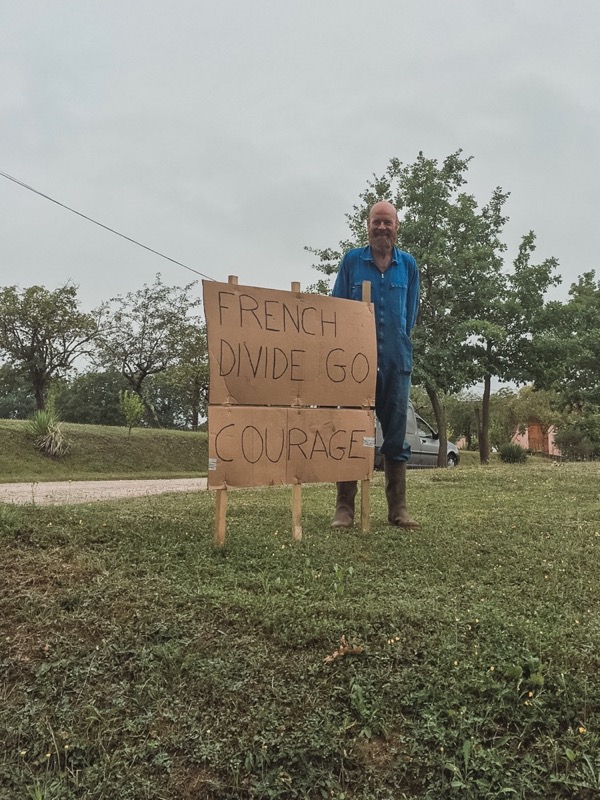 FRENCH
DIVIDE GO
COURAGE